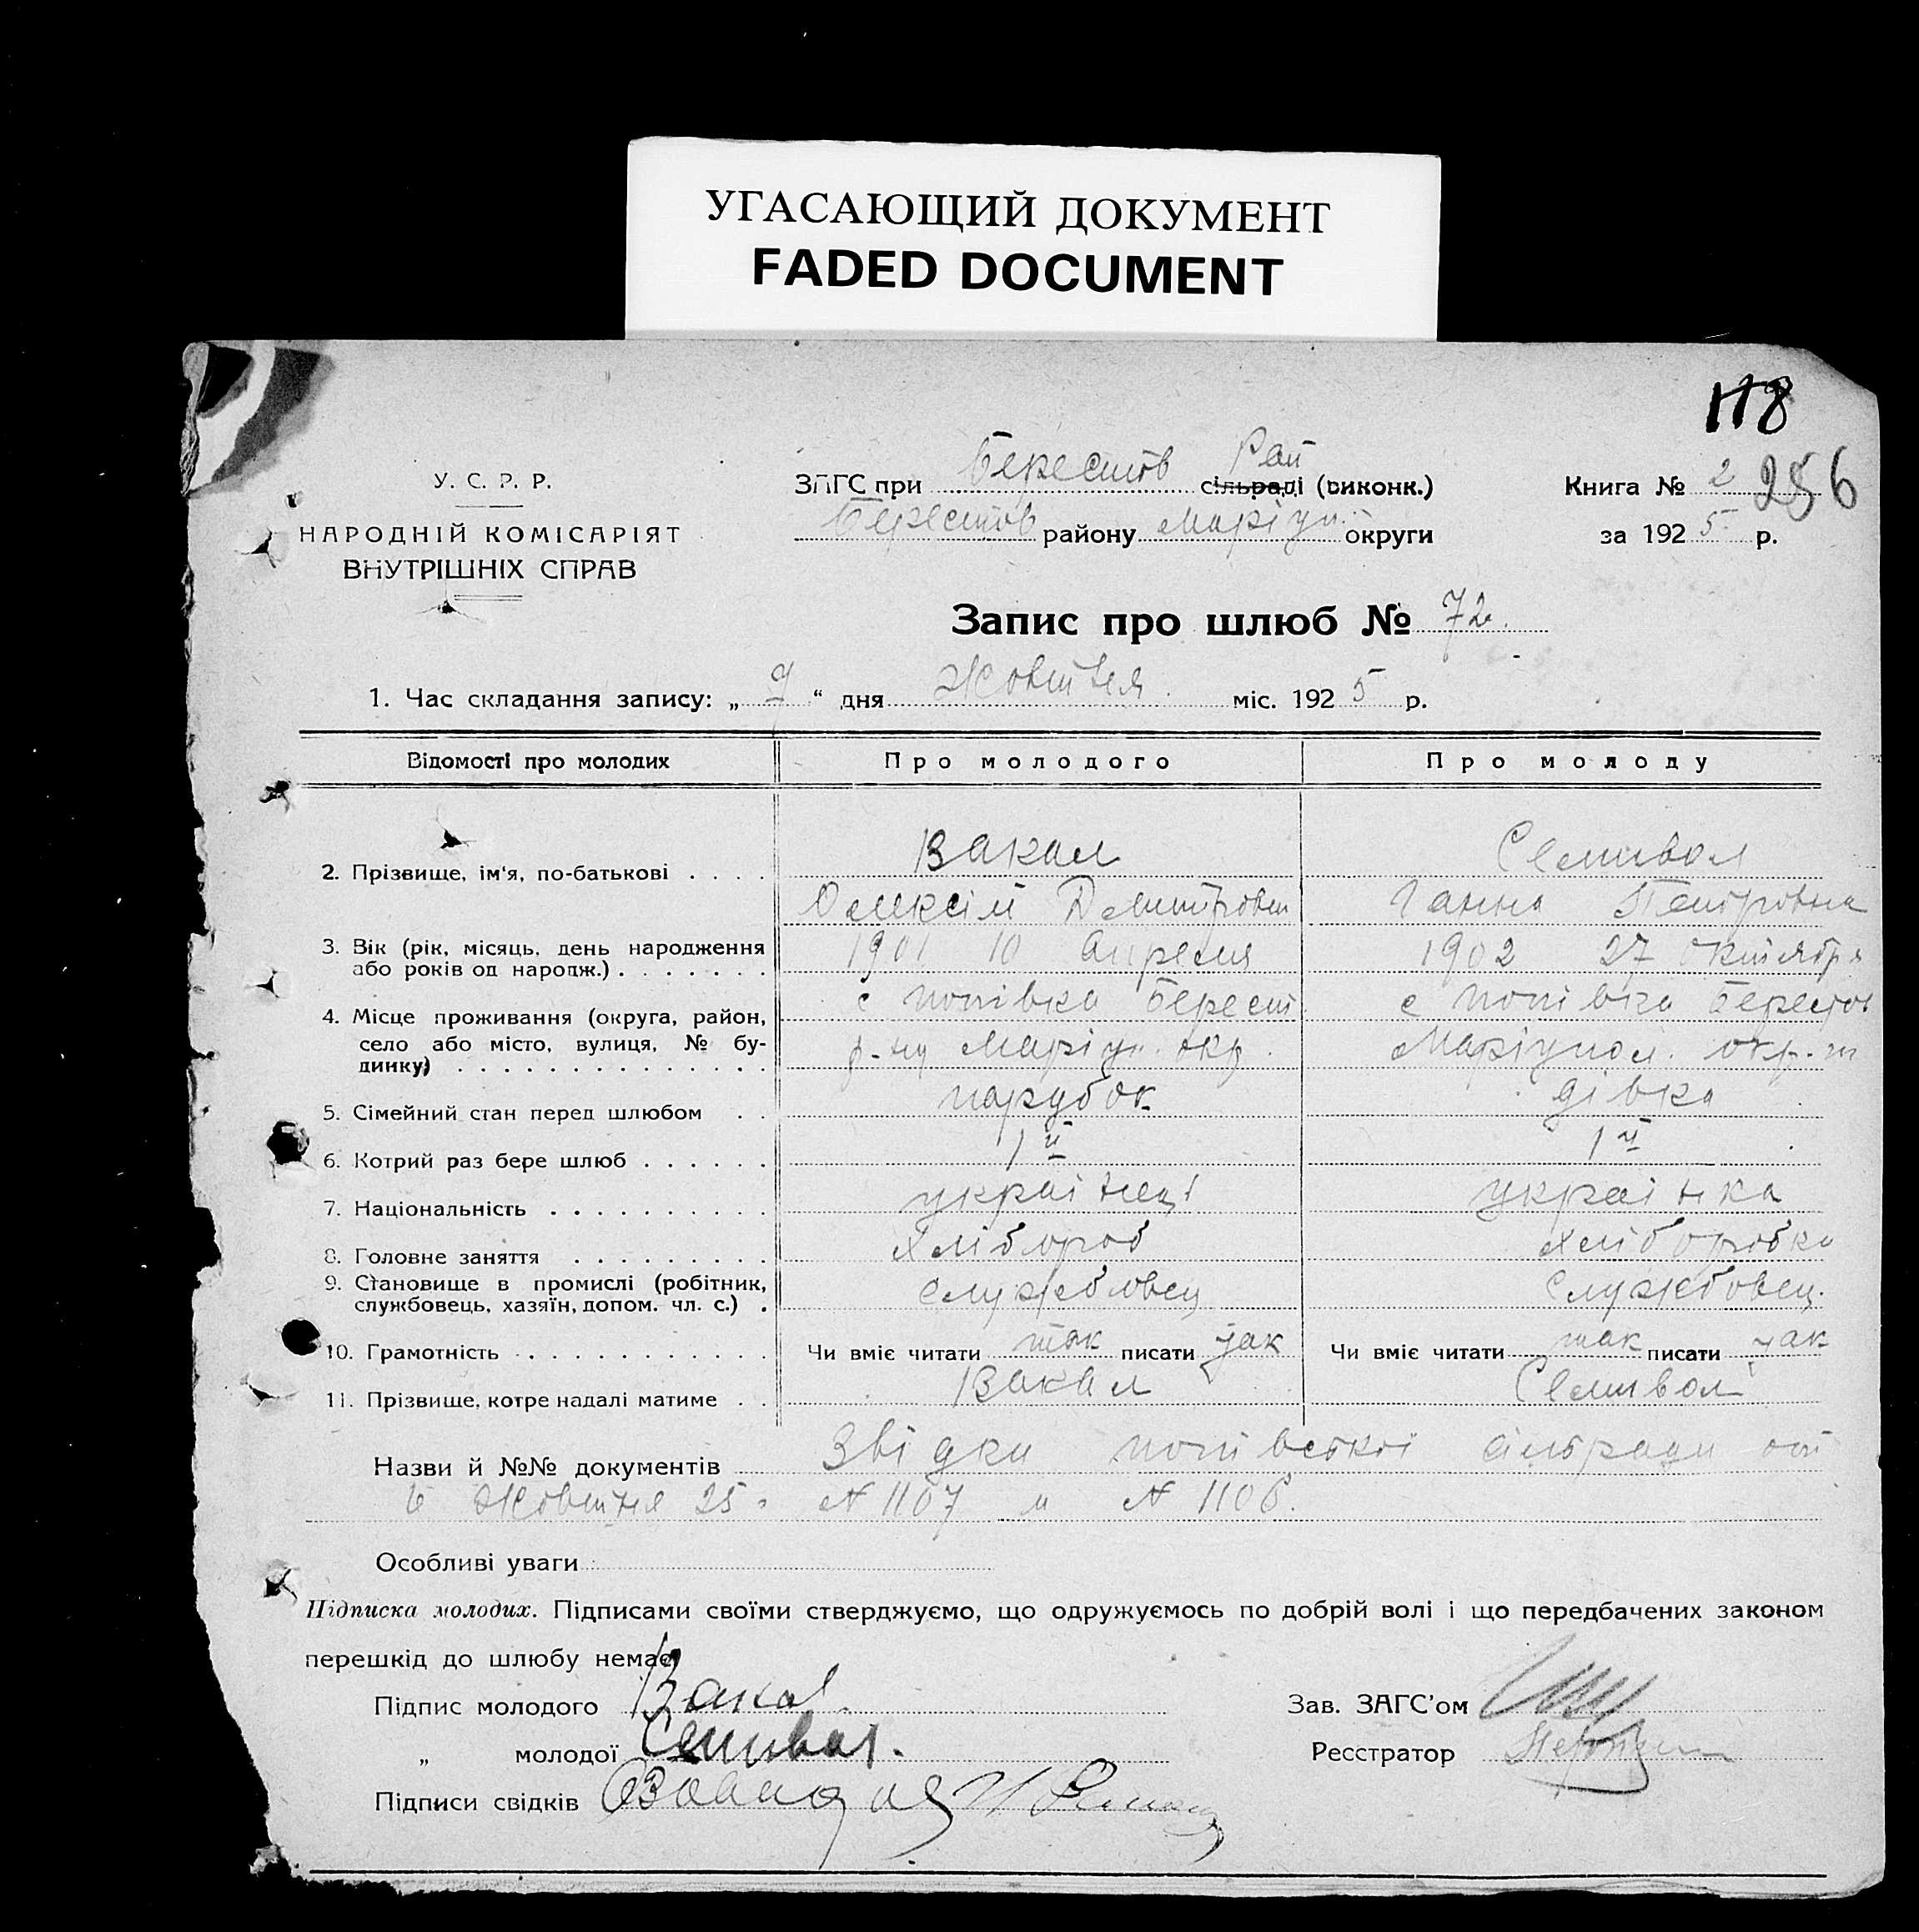 УГАСАЮЩИЙ ДОКУМЕНТ
FADED DOCUMENT
118
У. С. Р. Р.
НАРОДНІЙ КОМІСАРІЯТ
ВНУТРІШНІХ СПРАВ
ЗАГС при Берестов Рай сільраді (виконк.)
Берестов району Маріуп. округи
Книга № 2 256
за 1925 р.
Запис про шлюб № 72.
1. Час складання запису: „ 7 “ дня Жовтня міс. 1925 р.
Відомості про молодих Про молодого Про молоду
2. Прізвище, ім'я, по-батькові . . . . Вакал Семивол
Олексій Дмитрович Ганна Петровна
3. Вік (рік, місяць, день народження 1901 10 Апреля 1902 27 Октября
або років од народж.) . . . . . . .
4. Місце проживання (округа, район, с Попівка Берест с Попівка Берестов
село або місто, вулиця, № бу- р-ну Маріуп. окр. Маріупол. окр.
динку) . . . . . . . . . . . . . .
5. Сімейний стан перед шлюбом . . парубок дівка
6. Котрий раз бере шлюб . . . . . . 1й 1й
7. Національність . . . . . . . . . . українець українка
8. Головне заняття . . . . . . . . . хлібороб хліборобка
9. Становище в промислі (робітник, службовець, хазяїн, допом. чл. с.) . службовец службовец.
10. Грамотність . . . . . . . . . . . . Чи вміє читати так писати так Чи вміє читати так писати так
11. Прізвище, котре надалі матиме . . Вакал Семивол
Назви й №№ документів Звідки попівської сільради от
6 Жовтня 25 № 1107 и № 1106.
Особливі уваги
Підписка молодих. Підписами своїми стверджуємо, що одружуємось по добрій волі і що передбачених законом
перешкід до шлюбу немає
Підпис молодого Вакал Зав. ЗАГС'ом
„ молодої Семивол. Реєстратор
Підписи свідків